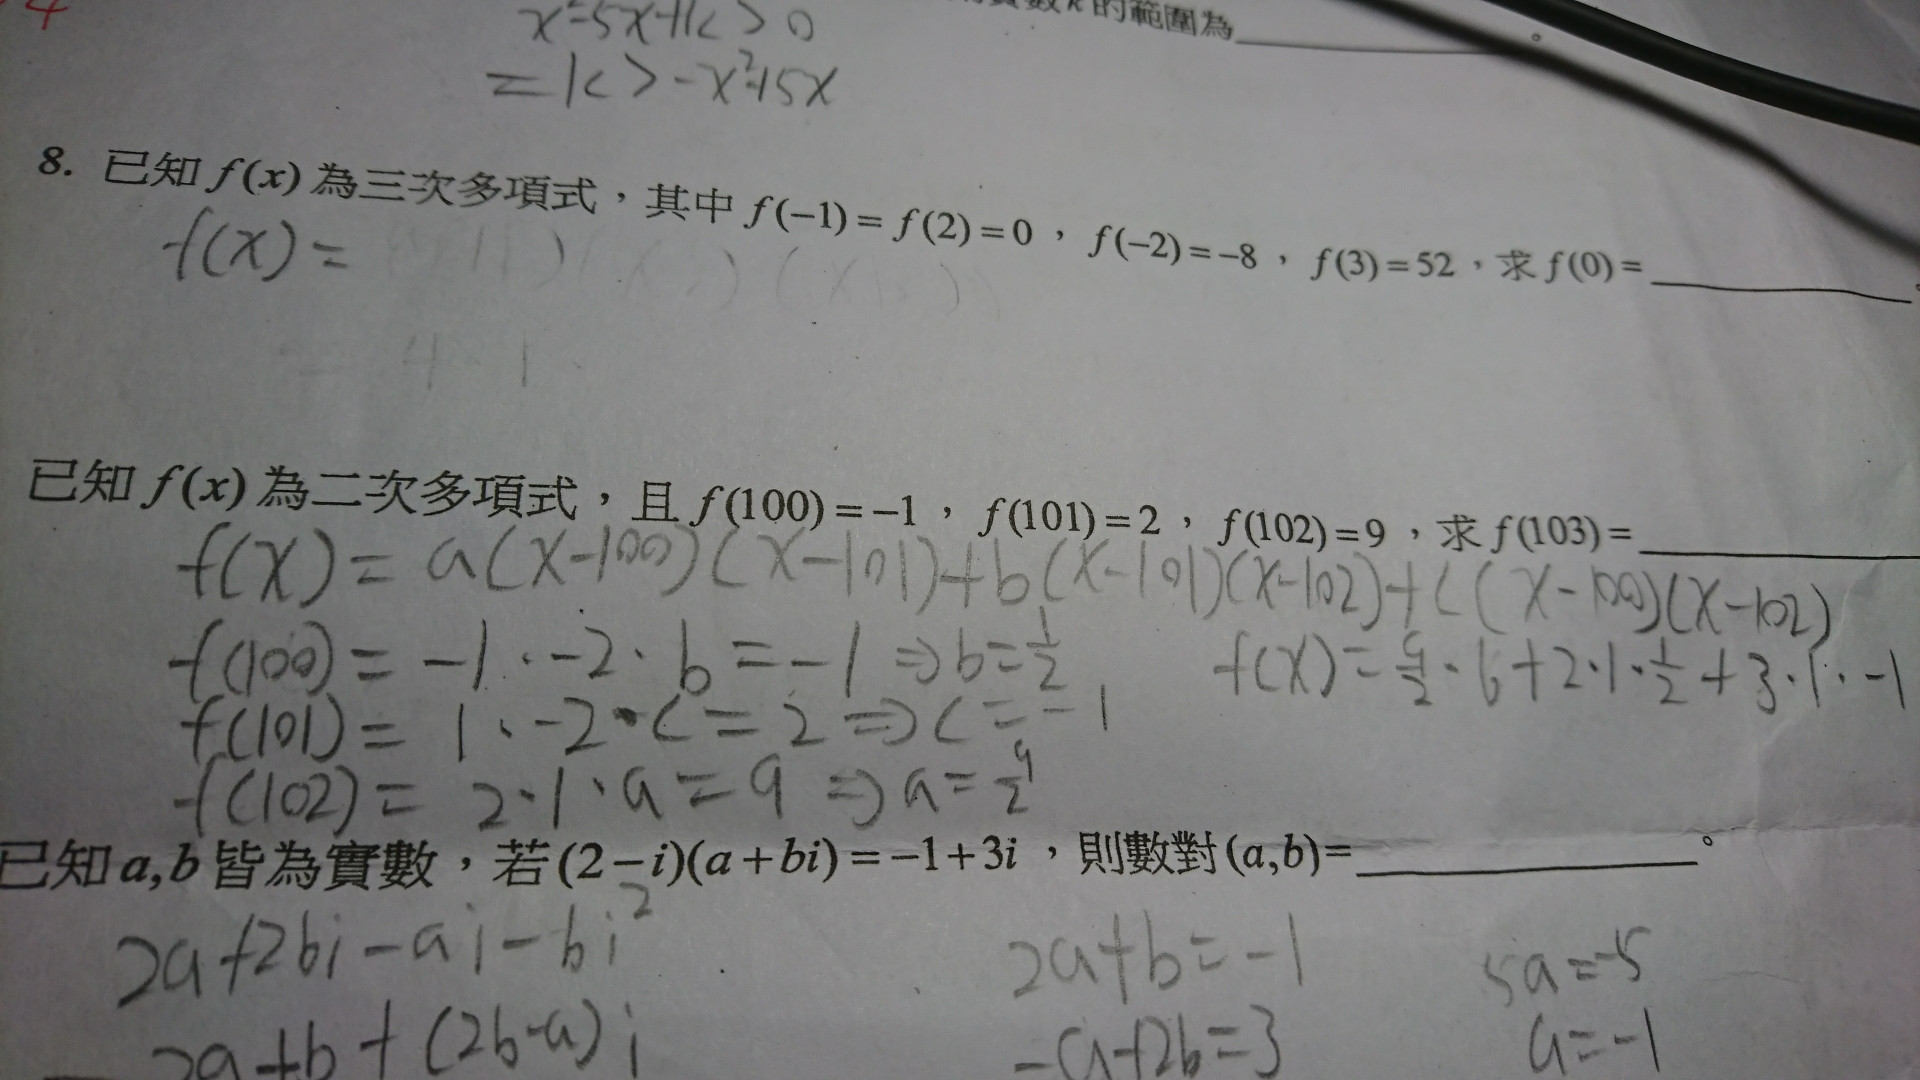 4
x²-5x+k>0
數k的範圍為________。
=k>-x²+5x
8. 已知 f(x) 為三次多項式，其中 f(−1)= f(2)=0，f(−2)=−8，f(3)=52，求 f(0)=________。
f(x)=
已知 f(x) 為二次多項式，且 f(100)=−1，f(101)=2，f(102)=9，求 f(103)=________
f(x)=a(x-100)(x-101)+b(x-101)(x-102)+c(x-100)(x-102)
f(100)=-1·-2·b=-1⇒b=1/2
f(x)=9/2·6+2·1·1/2+3·1·-1
f(101)=1·-2·c=2⇒c=-1
f(102)=2·1·a=9⇒a=9/2
已知 a,b 皆為實數，若 (2−i)(a+bi)=−1+3i，則數對 (a,b)=________。
2a+2bi-ai-bi²
2a+b=-1
5a=-5
2a+b+(2b-a)i
-a+2b=3
a=-1